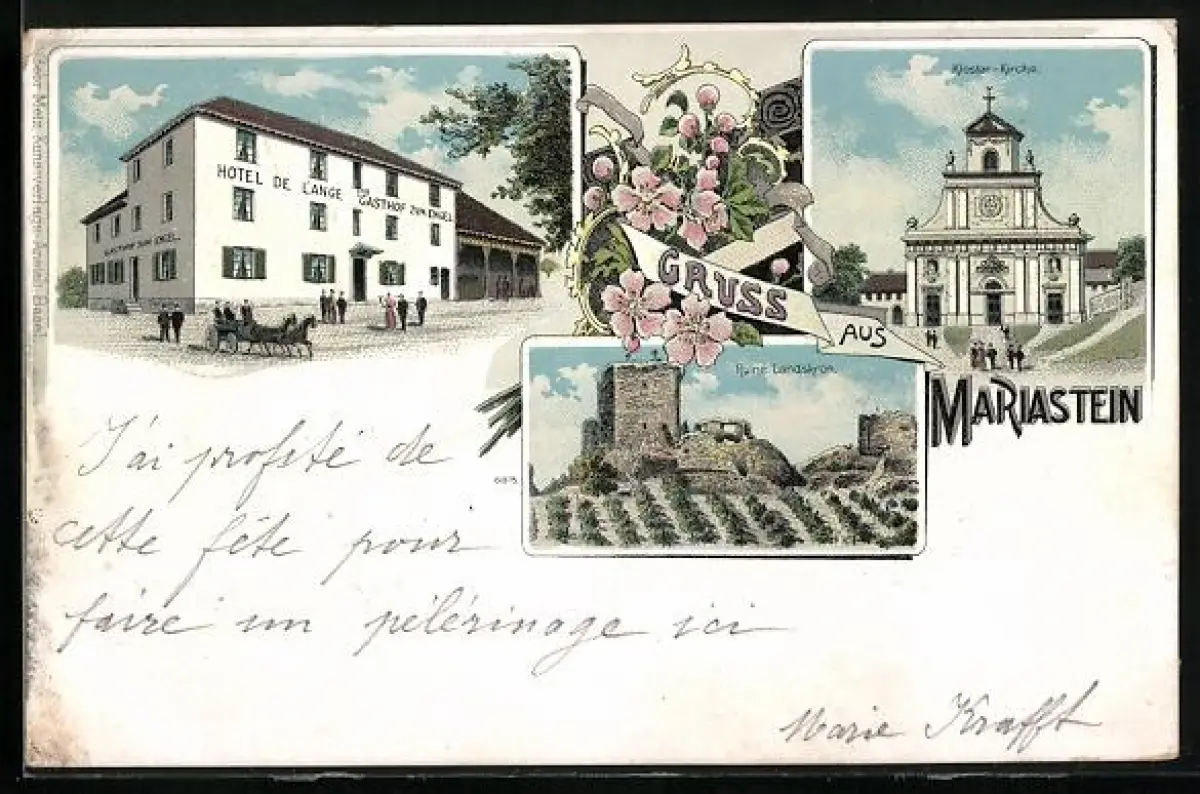 HOTEL DE L'ANGE
GASTHOF ZUM ENGEL
GASTHOF ZUM ENGEL
Kloster-Kirche.
GRUSS
AUS
MARIASTEIN
Ruine Landskron.
J'ai profité de
cette fête pour
faire un pélérinage ici
Marie Krafft